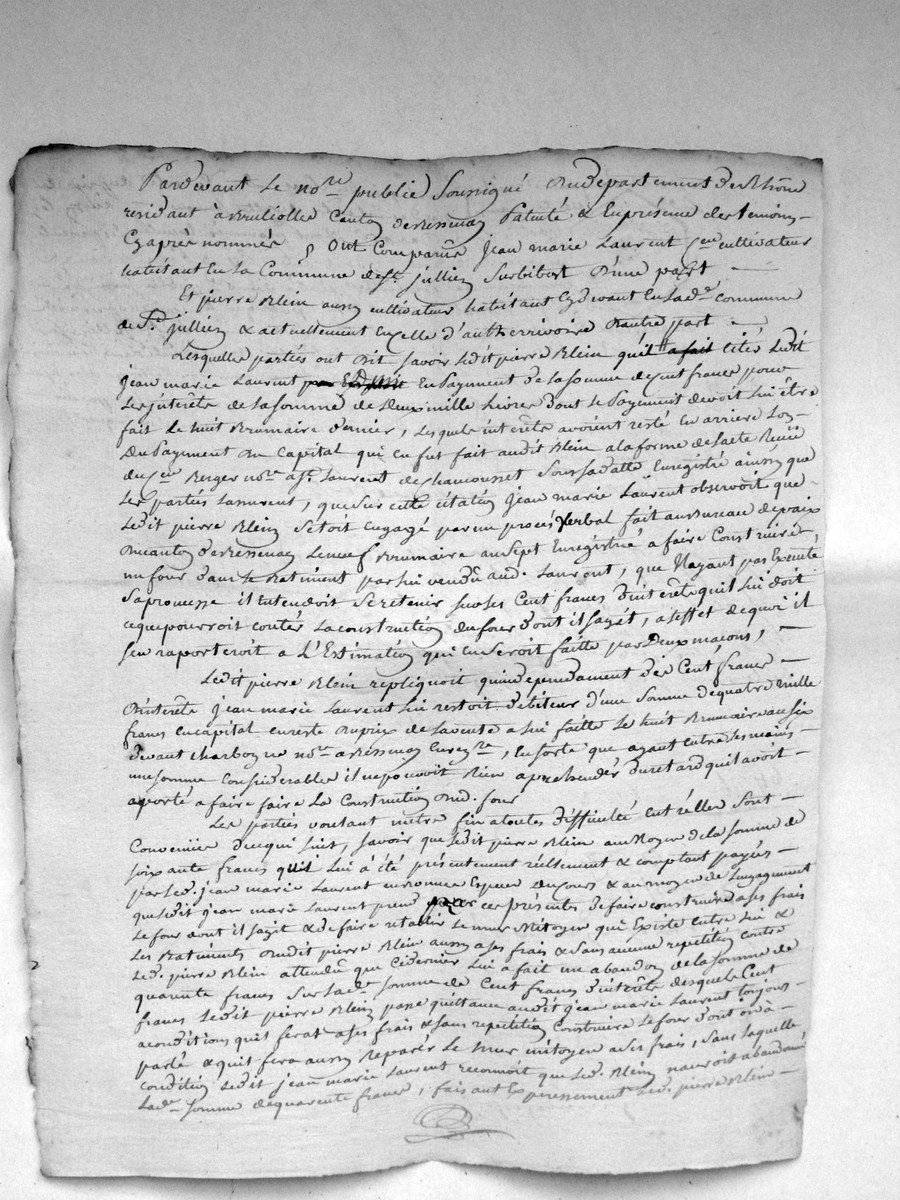 Pardevant Le no.re publie Soussigné Du departement du Rhône
residant à Brulliolle Canton de Bessenay Patenté & En présence des temoins
Cy après nommés § Ont Comparus Jean marie Laurent cultivateur
habitant En La Commune de St. jullien Sur bibost D'une part
Et pierre Blein aussy cultivateur habitant Cy devant En lad.e commune
de St. jullien & actuellement En celle d'auth Errivoire D'autre part
Lesquelles parties ont Dit Savoir Ledit pierre Blein qu'il a fait citer Ledit
Jean marie Laurent En Payement De la somme de Cent francs pour
Les jnterêts de la somme de Deux mille Livres dont le Payement devoit lui être
fait Le huit Brumaire dernier, Lesquels intérêts avoient resté En arriere Lors
Du Payement Du Capital qui En fut fait audit Blein a la forme de l'acte Reçu
du Berger no.re a St. Laurent de chamousset Sous sa datte Enregistré ainsy que
Les parties Lassurent, que Sur cette citation Jean marie Laurent observoit que
Ledit pierre Blein S'étoit Engagé par un procés Verbal fait au Bureau de paix
Du canton de Bessenay Le neuf Brumaire an Sept Enregistré a faire Construire
un four dans le Batiment par lui vendu aud. Laurent, que N'ayant pas Executé
Sa promesse il Entendoit Se retenir Sur les Cent francs d'intérêts qu'il lui doit
ce que pourroit couter La construction du four dont il S'agit, a l'effet de quoi il
S'en raporteroit a L'Estimation qui En Seroit faitte par Deux maçons,
Ledit pierre Blein repliquoit qu'independament des Cent francs
D'intérêts Jean marie Laurent Lui restoit débiteur d'une Somme de quatre mille
francs En capital En reste Du prix de la vente a lui faitte Le huit Brumaire an Six
devant Charboyne no.re a Bessenay Enreg.tre, En sorte que ayant Entre Ses mains
une somme Considerable il ne pouvoit Rien aprehender du retard qu'il avoit
aporté a faire faire La Construction Dud. four
Les parties voulant mettre fin a toutes difficultés Entr'elles Sont
Convenües De ce qui Suit, Savoir que ledit pierre Blein au Moyen de la Somme de
Soixante francs qu'il lui a été présentement réellement & comptant payés
par Led. jean marie Laurent en Especes Du Cours & au moyen de L'engagement
que ledit Jean marie Laurent prend par ces présentes De faire construire a Ses frais
Le four dont il S'agit & de faire retablir Le mur Mitoyen qui Existe Entre lui &
Les Batiments Dudit pierre Blein aussy a Ses frais & Sans aucune repetition contre
Led. pierre Blein attendu que Ce dernier Lui a fait un abandon de la Somme de
quarante francs Sur lad.e Somme de Cent francs d'intérêts desquels Cent
francs Ledit pierre Blein passe quittance audit Jean marie Laurent toujours
a conditions qu'il ferat a Ses frais & Sans repetition Construire Le four dont on à
parlé & quil fera aussy Reparér Le mur mitoyen a Ses frais, Sans laquelle
condition Ledit jean marie Laurent reconnoit que Led. Blein n'auroit abandonné
Lad.e Somme de quarente francs, faisant Expressement Led. pierre Blein